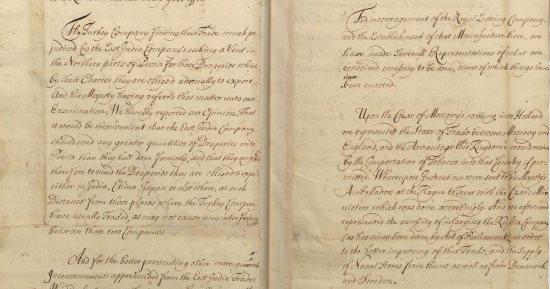 The Turkey Company finding their Trade much pre
judiced by the East India Company's seeking a Vent in
the Northern parts of Persia for those Draperies which
by their Charter they are obliged annually to export
And his Majesty having referr'd that matter unto our
Examination, We humbly reported our Opinion, That
it would be inconvenient that the East India Company
should send any greater quantities of Draperies into
Persia than they had done formerly, and that they ought
therefore to vend the Draperies they are obliged to export
either in India, China, Japan or elsewhere, at such
Distances from those places where the Turkey Company
have usually Traded, as may not cause any interfering
between those two Companies.
And for the better preventing other more general
Inconveniencies apprehended from the East India Trade
The incouragement of the Royal Lustring Company
and the Establishment of that Manufacture here, we
have made severall Representations of what we
conceived necessary to be done, divers of which things have
since
been enacted.
Upon the Czar of Moscovy's coming into Holland
we represented the State of Trade between Moscovy and
England, and the Advantage this Kingdom would receive
by the Importation of Tobacco into that Country if per
mitted. Whereupon Instructions were sent to his Majesty's
Ambassadors at the Hague to treat with the Czar's Mi
nisters which was done accordingly. And we afterwards
represented the necessity of inlarging the Russia Company
(as has since been done by Act of Parliament) in order
to the better improving of that Trade, and the supply
of Naval Stores from thence as well as from Denmark
and Sweden.